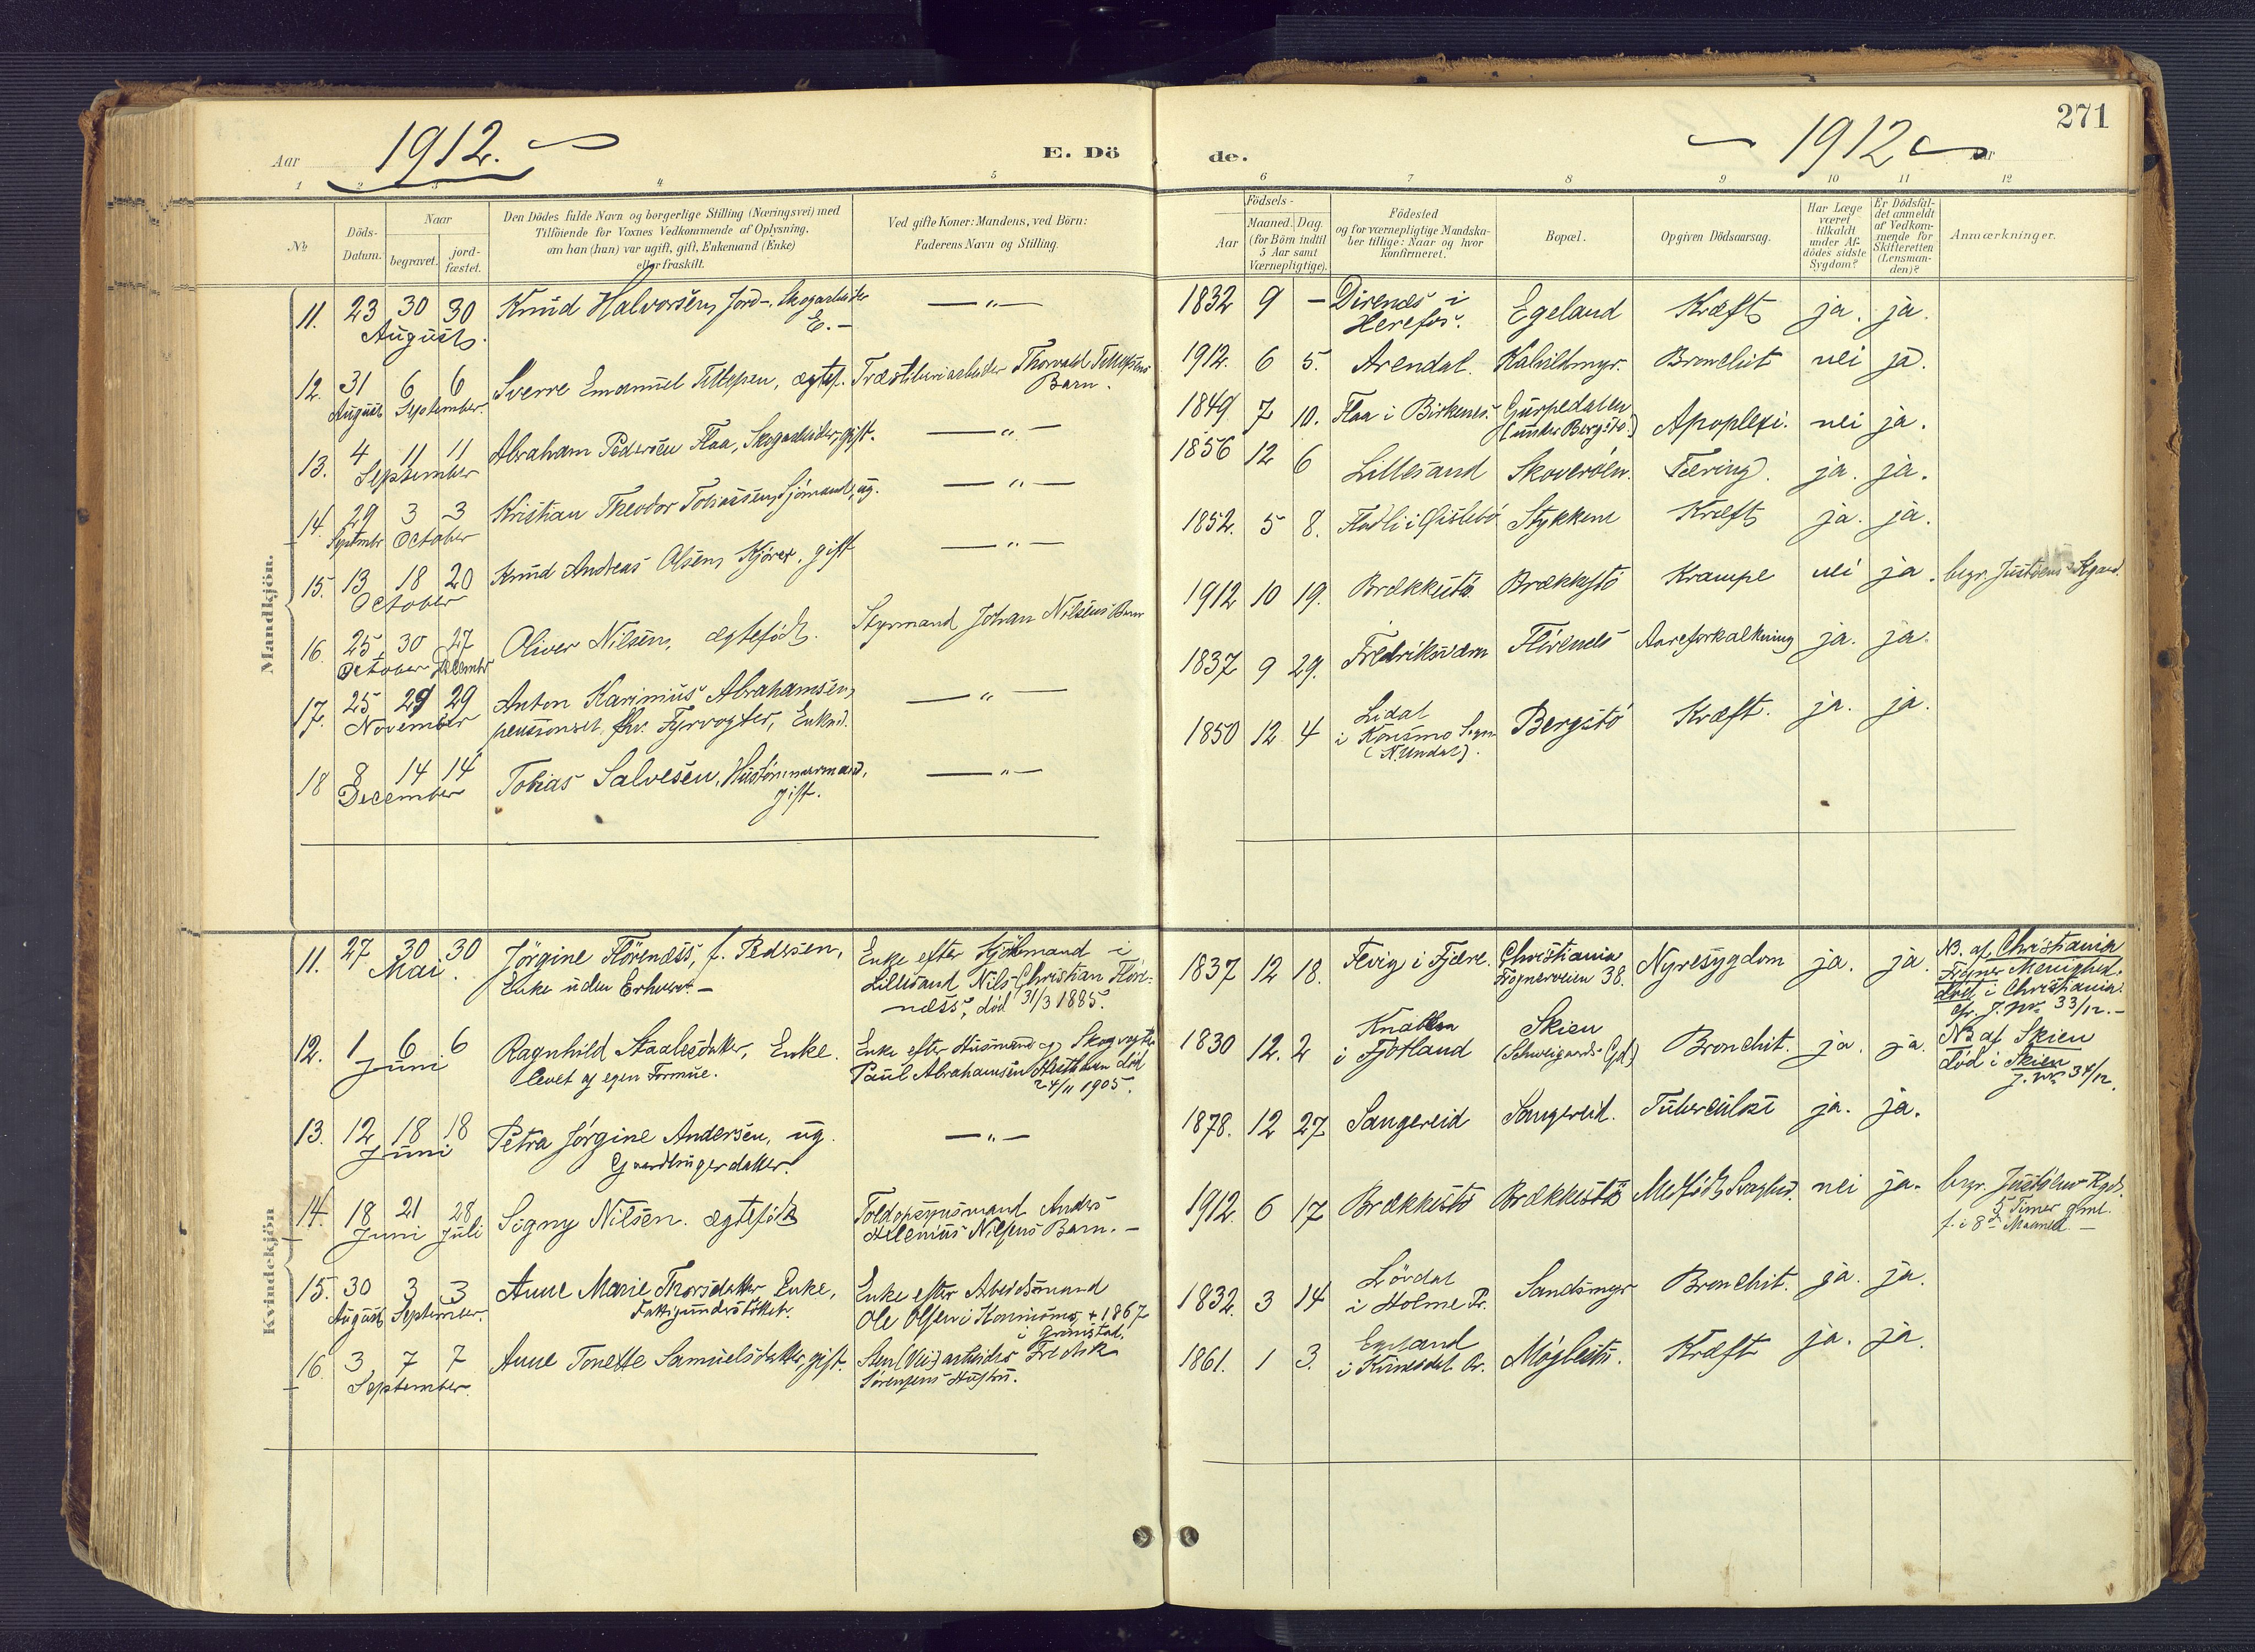 271
Aar 1912. E. Dö de. 1912 Aar
1 2 3 4 5 6 7 8 9 10 11 12
№
Döds-Datum.
Naar
begravet.
jord-fæstet.
Den Dödes fulde Navn og borgerlige Stilling (Næringsvei) med
Tilföiende for Voxnes Vedkommende af Oplysning,
om han (hun) var ugift, gift, Enkemand (Enke)
eller fraskilt.
Ved gifte Koner: Mandens, ved Börn:
Faderens Navn og Stilling.
Födsels-
Aar
Maaned. Dag.
(for Börn indtil
5 Aar samt
Værnepligtige).
Födested
og for værnepligtige Mandska-
ber tillige: Naar og hvor
konfirmeret.
Bopæl.
Opgiven Dödsaarsag.
Har Læge
været
tilkaldt
under Af-
dödes sidste
Sygdom?
Er Dödsfal-
det anmeldt
af Vedkom-
mende for
Skifteretten
(Lensman-
den)?
Anmærkninger.
Mandkjön.
11. 23 30 30 Knud Halvorsen, Jord-, Skogarbeider — " — 1832 9 — Direnes i Egeland Kræft ja. ja.
August. E. — Herefos.
12. 31 6 6 Sverre Emanuel Tellefsen, ægtef. Træsliberiarbeider Thorvald Tellefsens 1912. 6 5. Arendal. Kalvildmyr. Bronchit nei ja.
August September. Barn.
13. 4 11 11 Abraham Pedersen Flaa, Skogarbeider, gift. — " — 1849 7 10. Flaa i Birkenes. Gurpedalen Apoplexi. nei ja.
September (under Bergstø.)
14. 29 3 3 Kristian Theodor Tobiassen, Sjömand, ug. — " — 1856 12 6 Lillesand Skoveröen. Tæring. ja. ja.
Septembr October
15. 13 18 20 Knud Andreas Olsen, Kjörer, gift — " — 1852. 5 8. i Øislebö Stykkene Kræft ja. ja.
October
16. 25 30 27 Oliver Nilsen, ægtefödt. Styrmand Johan Nilsens Barn 1912 10 19. Brækkestö Brækkestö Krampe nei ja. begr. Justöens Kgaard.
October Decembr
17. 25 29 29 Anton Karinius Abrahamsen, — " — 1837 9 29. Fredriksværn Flörenes Aareforkalkning ja. ja.
November pensioneret fhv. Fyrvogter, Enkmd.
18 8 14 14 Tobias Salvesen, Hustömmermand, — " — 1850 12 4 Lidal Bergstö Kræft. ja. ja.
December gift. i Konsmo Sogn
(N. Undal).
Kvindekjön
11. 27 30 30 Jörgine Flörenæss, f. Pedersen, Enke efter Kjöbmand i 1837 12 18. Fevig i Fjære. Christiania Nyresygdom ja. ja. NB. af Christiania
Mai. Enke uden Erhverv. — Lillesand Nils Christian Flör- Frognerveien 38. Frogner Menighed.
næss, död 31/3 1885. död i Christiania.
cfr. J. Nr. 33/12. —
12. 1 6 6 Ragnhild Staalesdatter, Enke. Enke efter Husmand og Skogvogter 1830 12. 2 Knaben Skien Bronchit. ja. ja. NB af Skien
Juni levet af egen Formue. Paul Abrahamsen död i Fjotland (Schweigaards Gd.) död i Skien
24/11 1905. J. Nr. 34/12.
13. 12 18 18 Petra Jörgine Andersen, ug. — " — 1878. 12 27 Sangereid Sangereid. Tuberculose ja. ja.
Juni Gaardbrugerdatter.
14. 18 21 28 Signy Nilsen. ægtefödt Toldopsynsmand Anders 1912. 6 17 Brækkestö Brækkestö Medfödt Svaghed. nei ja. begr. Justöens Kgd.
Juni Juli Helenius Nilsens Barn. — 5 Timer gml.
f. i 8de Maaned. —
15. 30 3 3 Anne Marie Thorsdatter Enke, Enke efter Arbeidsmand 1832. 3 14 Lövdal Sandsmyr Bronchit. ja. ja.
August September. Fattigunderstöttet. Ole Olsen i + 1867 i Holme Pr.
i Grimstad.
16. 3 7 7 Anne Tonette Samuelsdatter, gift. Sten (Vei) arbeider Fredrik 1861. 1 3. Egeland Möglestu. Kræft ja. ja.
September. Sörensens Hustru. i Pr.